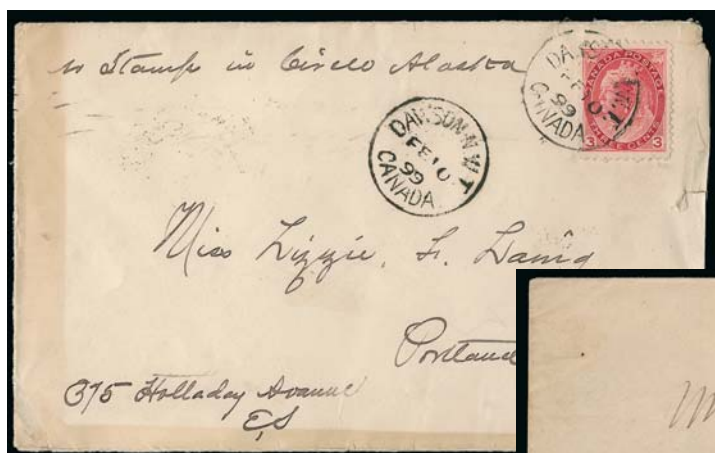 no Stamps in Circle Alaska
DAWSON·N.W.T.
FE 10
99
CANADA
CANADA POSTAGE
3 3
DAWSON·N.W.T.
FE 10
99
CANADA
Miss Lizzie, F. Laing
Portland
375 Holladay Avenue
E,S
M